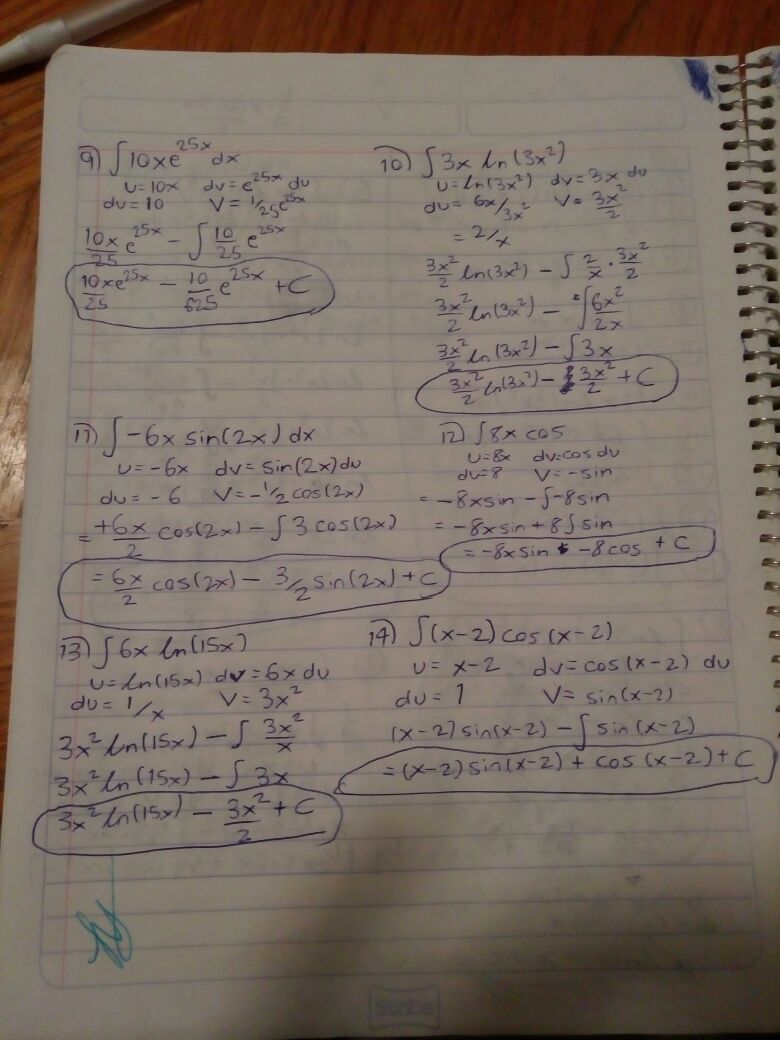 9) ∫10xe^25x dx
u=10x dv=e^25x du
du=10 v=1/25e^25x
10x/25 e^25x - ∫10/25 e^25x
10xe^25x/25 - 10/625 e^25x + C
10) ∫3x ln(3x²)
u=ln(3x²) dv=3x du
du=6x/3x² v=3x²/2
=2/x
3x²/2 ln(3x²) - ∫2/x · 3x²/2
3x²/2 ln(3x²) - ∫6x²/2x
3x²/2 ln(3x²) - ∫3x
3x²/2 ln(3x²) - 3x²/2 + C
11) ∫-6x sin(2x) dx
u=-6x dv=sin(2x)du
du=-6 v=-1/2 cos(2x)
=+6x/2 cos(2x) - ∫3 cos(2x)
=6x/2 cos(2x) - 3/2 sin(2x) + C
12) ∫8x cos
u=8x dv=cos du
du=8 v=-sin
=-8x sin - ∫-8 sin
=-8x sin + 8∫sin
=-8x sin -8cos + C
13) ∫6x ln(15x)
u=ln(15x) dv=6x du
du=1/x v=3x²
3x² ln(15x) - ∫3x²/x
3x² ln(15x) - ∫3x
3x² ln(15x) - 3x²/2 + C
14) ∫(x-2)cos(x-2)
u=x-2 dv=cos(x-2) du
du=1 v=sin(x-2)
(x-2)sin(x-2) - ∫sin(x-2)
=(x-2)sin(x-2) + cos(x-2) + C
Scribe